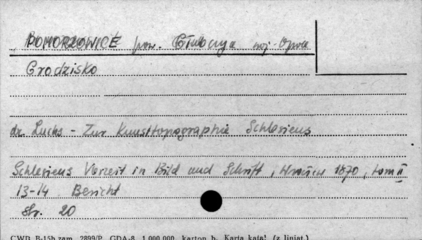 POMORZOWICE pow. Głubczyce woj. Opole
Grodzisko
dr. Luchs - Zur Kunsttopographie Schlesiens
Schlesiens Vorzeit in Bild und Schrift, 1870,
13-14 Bericht
Str. 20
CWD B-15b zam. 2899/P GDA-8 1.000.000 karton b. Karta katal. (z liniat.)